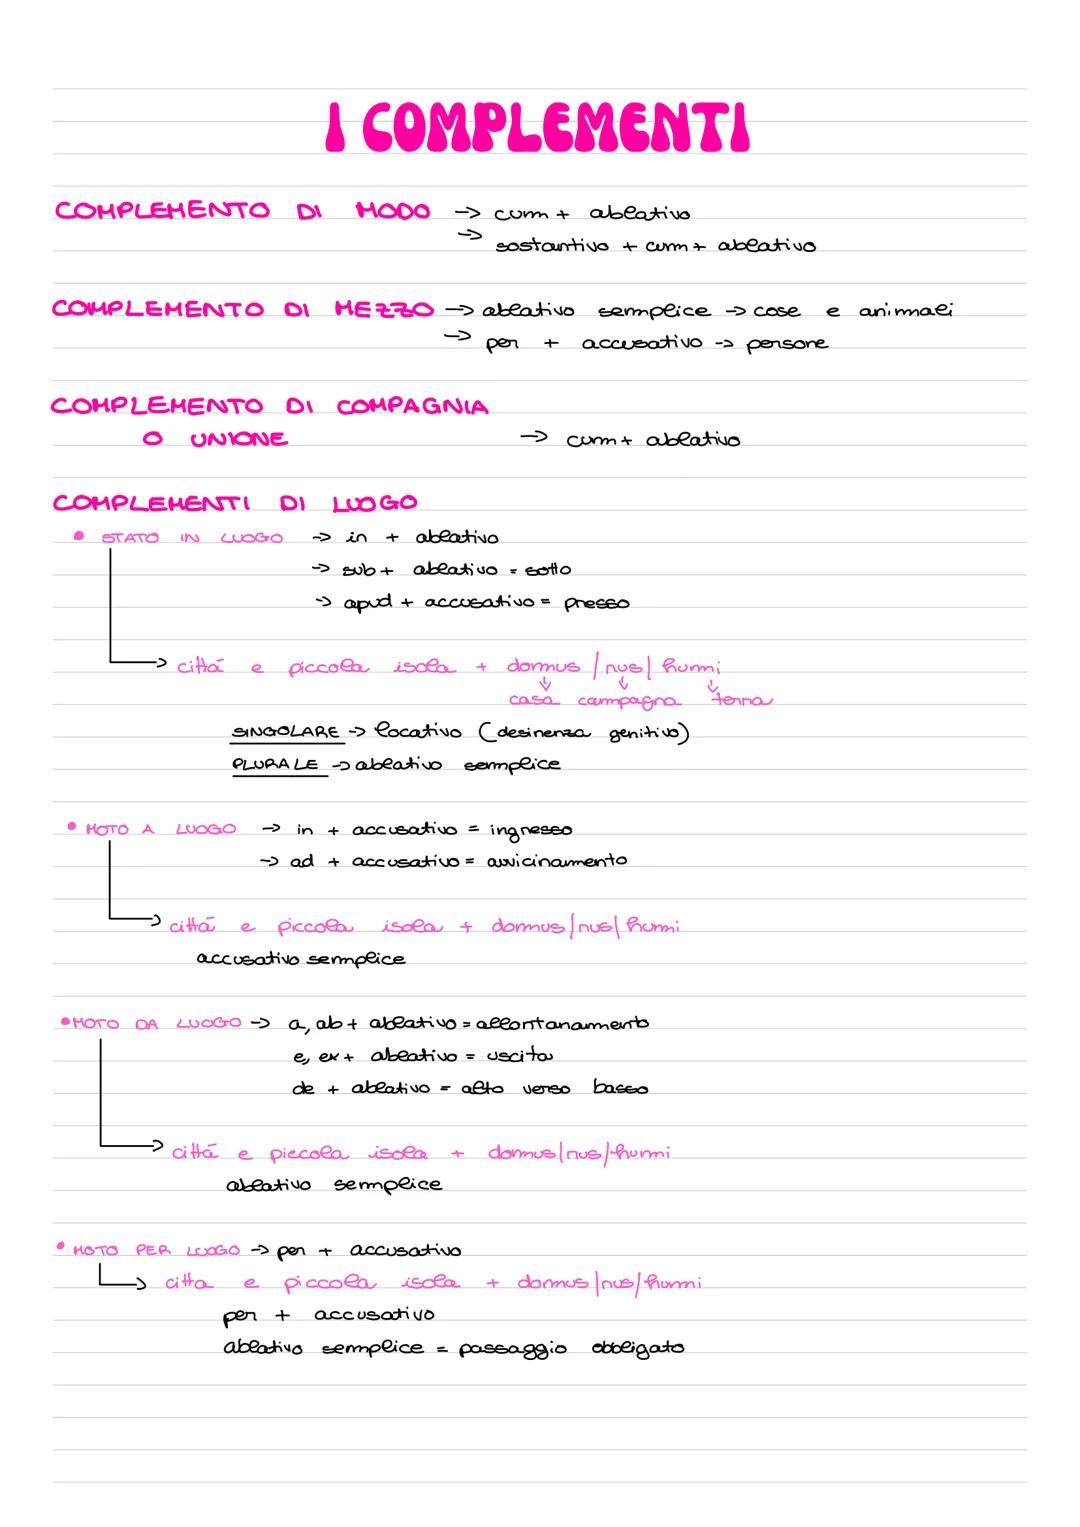 I COMPLEMENTI
COMPLEMENTO DI MODO → cum + ablativo
→ sostantivo + cum + ablativo
COMPLEMENTO DI MEZZO → ablativo semplice → cose e animali
→ per + accusativo → persone
COMPLEMENTO DI COMPAGNIA
O UNIONE → cum + ablativo
COMPLEMENTI DI LUOGO
• STATO IN LUOGO → in + ablativo
→ sub + ablativo = sotto
→ apud + accusativo = presso
→ città e piccola isola + domus / rus / humi
casa campagna terra
SINGOLARE → locativo (desinenza genitivo)
PLURALE → ablativo semplice
• MOTO A LUOGO → in + accusativo = ingresso
→ ad + accusativo = avvicinamento
→ città e piccola isola + domus / rus / humi
accusativo semplice
• MOTO DA LUOGO → a, ab + ablativo = allontanamento
e, ex + ablativo = uscita
de + ablativo = alto verso basso
→ città e piccola isola + domus / rus / humi
ablativo semplice
• MOTO PER LUOGO → per + accusativo
→ citta e piccola isola + domus / rus / humi
per + accusativo
ablativo semplice = passaggio obbligato